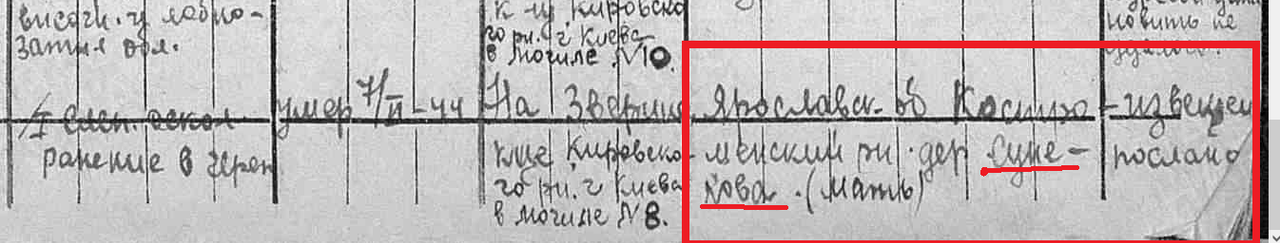 височн. и лобно-
затыл обл.
к-ще Кировско
го рн. г Киева
в могиле N10.
новить не
удалось.
/I слеп. оскол.
ранение в череп
умер 7/II-44
На Зверин
кще Кировско-
го рн. г Киева
в могиле N8.
Ярославск. об Костро-
менский рн. дер Суне-
кова. (мать)
-извещен
послано